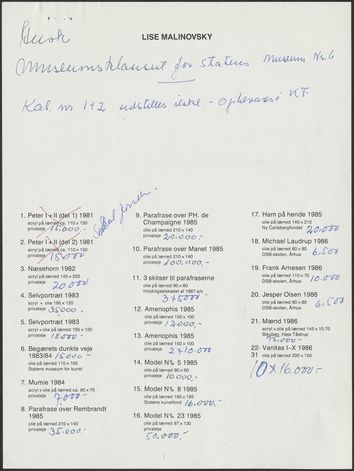 LISE MALINOVSKY
Museumsklausul for Statens Museum Nr. 6
Kat. nr 1+2 udstilles ikke - opbevares i KT.
1. Peter I + II (del 1) 1981
acryl på lærred ca. 110 x 150
privateje 15.000-
2. Peter I + II (del 2) 1981
acryl på lærred ca. 110 x 150
privateje 15.000
3. Næsehorn 1982
acryl på lærred 140 x 250
privateje 20.000
4. Selvportræt 1983
acryl + olie 195 x 120
privateje 35000.-
5. Selvportræt 1983
acryl + olie på lærred 195 x 120
privateje 18000.-
6. Begærets dunkle veje
1983/84 15000-
olie på lærred 110 x 160
Statens museum for kunst
7. Mumie 1984
acryl + olie på lærred ca. 90 x 70
privateje 7.000-
8. Parafrase over Rembrandt
1985
olie på lærred 210 x 140
privateje 35.000-
9. Parafrase over PH. de
Champaigne 1985
olie på lærred 210 x 140
privateje 20.000.-
10. Parafrase over Manet 1985
olie på lærred 210 x 140
privateje 200.000,-
11. 3 skitser til parafraserne
olie på lærred 90 x 60
Holdingselskabet af 1867 a/s
3x5000-
12. Amenophis 1985
olie på lærred 150 x 100
privateje 12000.-
13. Amenophis 1985
olie på lærred 150 x 100
privateje 2x10.000
14. Model N⁰ 5 1985
olie på lærred 90 x 60
privateje 10.000.-
15. Model N⁰ 8 1985
olie på lærred 195 x 120
Statens kunstfond 16.000.-
16. Model N⁰ 23 1985
olie på lærred 97 x 130
privateje
50.000.-
17. Ham på hende 1985
olie på lærred 140 x 210
Ny Carlsbergfondet 20.000
18. Michael Laudrup 1986
olie på lærred 80 x 80
DSB-skolen, Århus 6.500
19. Frank Arnesen 1986
olie på lærred 110 x 70
DSB-skolen, Århus 10.000
20. Jesper Olsen 1986
olie på lærred 60 x 80
DSB-skolen, Århus 6.500
21. Mænd 1986
acryl + olie på lærred 145 x 10.70
22- Vanitas I-X 1986
31 olie på lærred 200 x 150
10x16.000-